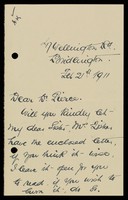 7 Wellington Rd.
Bridlington.
Feb 21st 1911
Dear Dr Pierce.
Will you kindly let
My dear Sister, Mrs
have the enclosed letter,
if you think it wise,
I leave it for you
to read, if you wish to
burn it, do so.